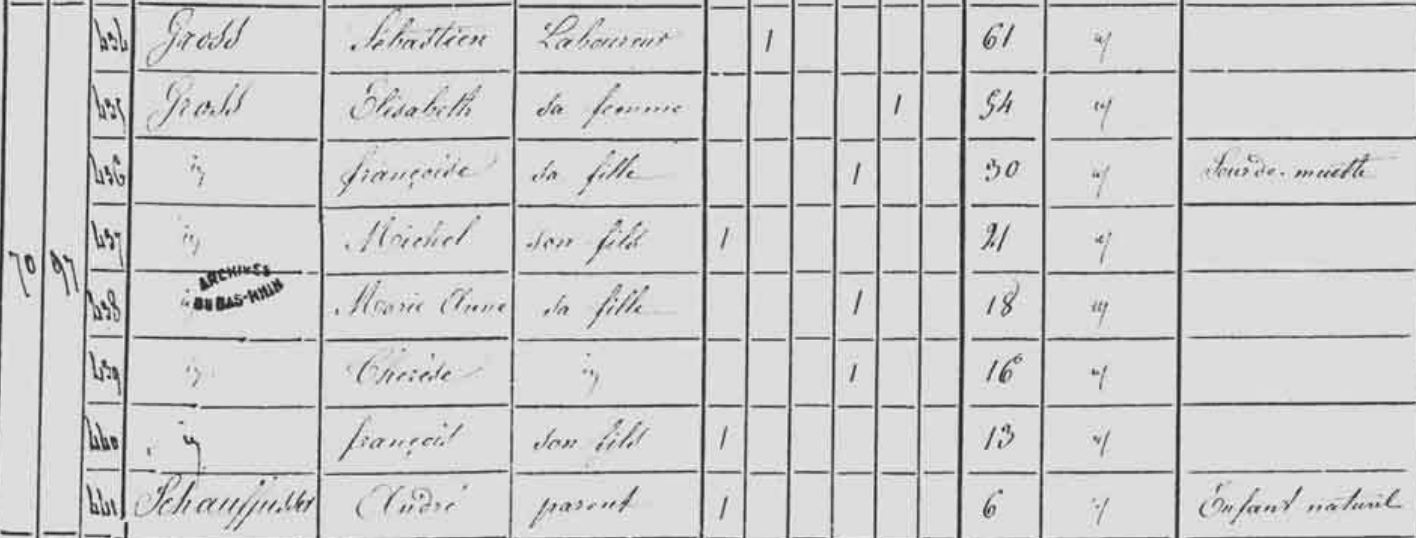 434 Gross Sébastien Laboureur 1 61 "
435 Gross Elisabeth sa femme 1 54 "
436 id françoise sa fille 1 30 " Sourde-muette
70 97 437 id Michel son fils 1 21 "
ARCHIVES
DU BAS-RHIN
438 id Marie Anne sa fille 1 18 "
439 id Thérèse id 1 16 "
440 id françois son fils 1 13 "
441 André parent 1 6 " Enfant naturel